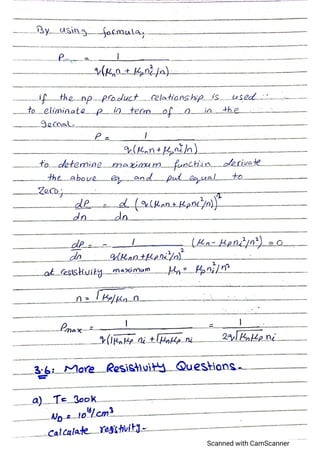 By using formula;
P = 1 / q(μnn + μpni²/n)
if the np product relationship is used
to eliminate p in term of n in the
P = 1 / q(μnn + μpni²/n)
to detemine maximum function derivate
the above eq and put equal to
zero;
dP/dn = d/dn (q(μnn + μpni²/n))
dP/dn = - 1 / q(μnn + μpni²/n)² (μn - μpni²/n²) = 0
at resistivity maximum μn = μpni²/n²
n = √μp/μn n
Pmax = 1 / q(√μnμp ni + √μnμp ni) = 1 / 2q√μnμp ni
3.6: More Resistivity Questions.
a) T = 300k
ND = 10¹⁴/cm³
calculate resistivity.
Scanned with CamScanner